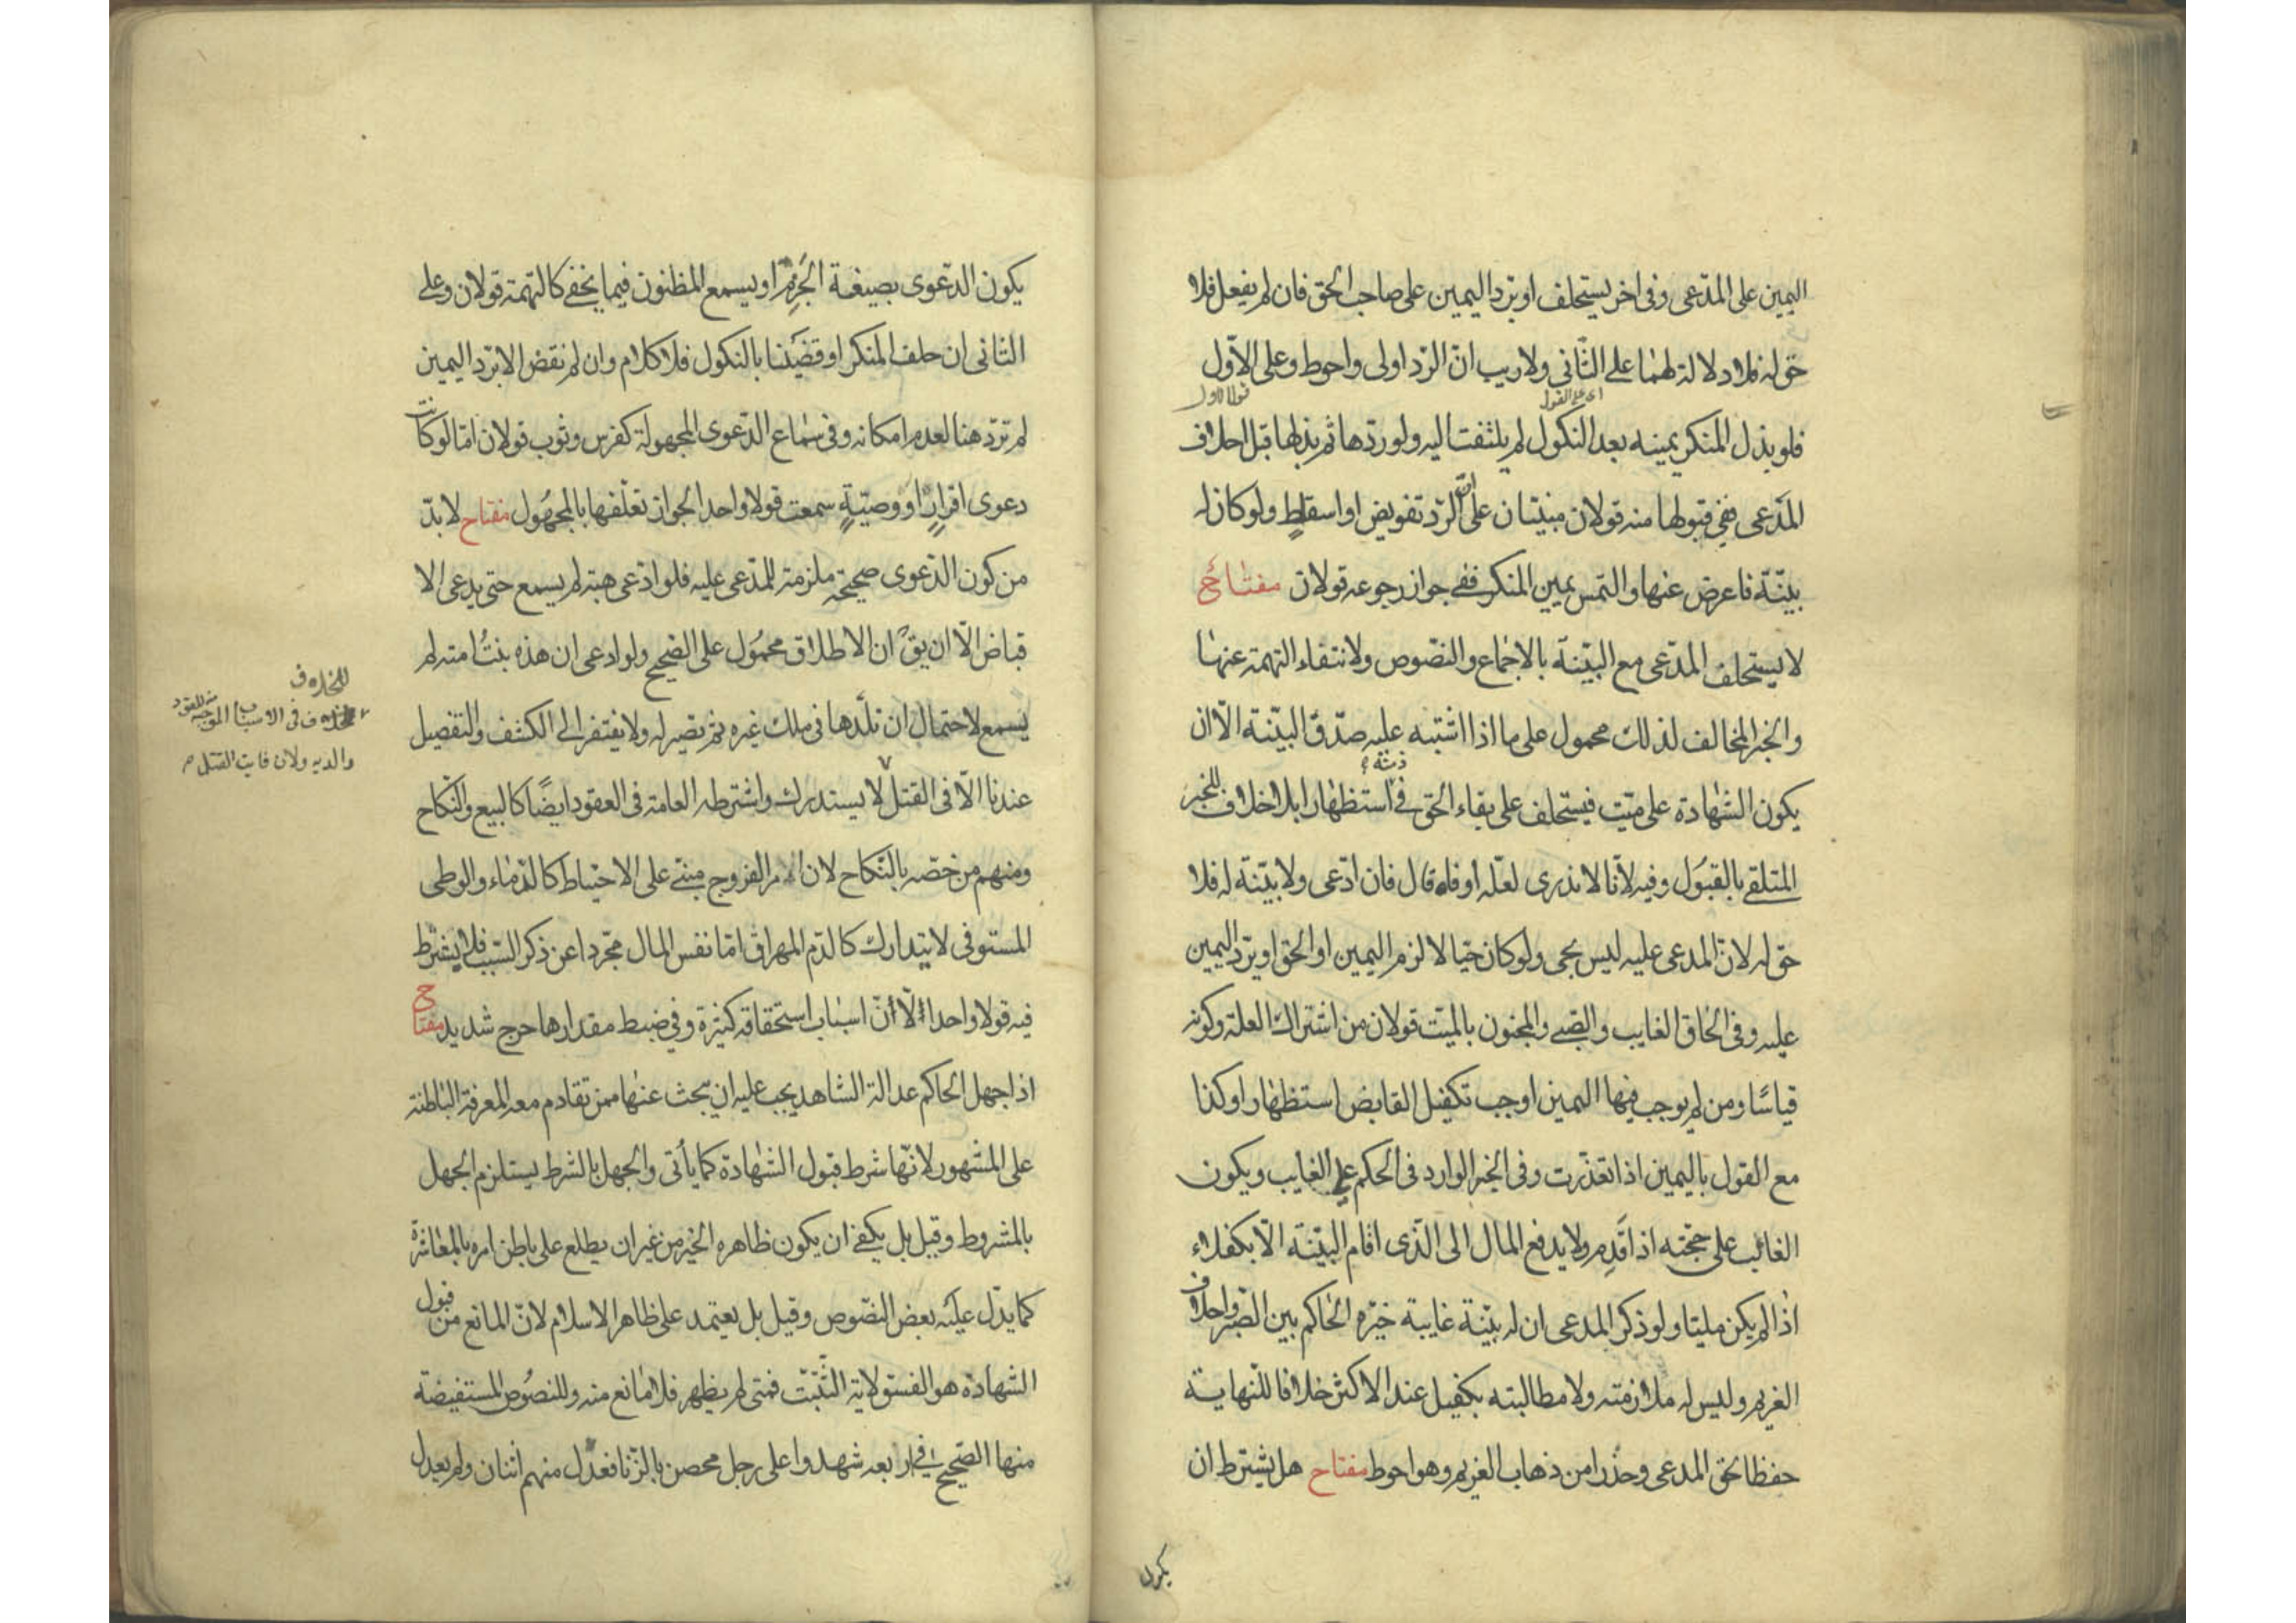 اليمين على المدّعى وفى اخر يستحلف او يردّ اليمين على صاحب الحق فان لم يفعل فلا
حق له فلا دلالة لهما على الثّانى ولا ريب انّ الردّ اولى واحوط وعلى الاوّل
اى على القول
فلو بذل المنكر يمينه بعد النكول لم يلتفت اليه ولو ردّها ثم بذلها قبل احلاف
المدّعى ففى قبولها منه قولان مبنيّان على انّ الردّ تفويض او اسقاط ولو كان له
بيّنة فاعرض عنها والتمس يمين المنكر ففى جواز رجوعه قولان مفتاح
لا يستحلف المدّعى مع البيّنة بالاجماع والنصّوص ولانتفاء التهمة عنها
والخبر المخالف لذلك محمول على ما اذا اشتبه عليه صدق البيّنة الّا ان
يكون الشهادة على ميّت فيستحلف على بقاء الحق فى ذمته استظهارا بلا خلاف للخبر
المتلقى بالقبول وفيه لأنّا لا ندرى لعلّه اوفاه قال فان ادّعى ولا بيّنة له فلا
حق له لانّ المدعى عليه ليس بحى ولو كان حيّا لالزم اليمين او الحق او يردّ اليمين
عليه وفى الحاق الغايب والصّبى والمجنون بالميّت قولان من اشتراك العلة وكونه
قياسًا ومن لم يوجب فيها اليمين اوجب تكفيل القابض استظهارا وكذا
مع القول باليمين اذا تعذّرت وفى الخبر الوارد فى الحكم على الغايب ويكون
الغائب على حجّته اذا قدم ولا يدفع المال الى الّذى اقام البيّنة الّا بكفلاء
اذا لم يكن مليّا ولو ذكر المدعى ان له بيّنة غايبة خيّره الحاكم بين الصّبر واحلاف
الغريم وليس له ملازمته ولا مطالبته بكفيل عند الاكثر خلافا للنّهاية
حفظا لحق المدعى وحذرا من ذهاب الغريم وهو احوط مفتاح هل يشترط ان
يكون الدّعوى بصيغة الجزم او يسمع المظنون فيما يخفى كالتهمة قولان وعلى
الثانى ان حلف المنكر او قضينا بالنكول فلا كلام وان لم نقض الا بردّ اليمين
لم تردّ هنا لعدم امكانه وفى سماع الدّعوى المجهولة كفرس وثوب قولان امّا لو كانت
دعوى اقرار او وصيّة سمعت قولا واحدا لجواز تعلّقها بالمجهول مفتاح لا بدّ
من كون الدّعوى صحيحة ملزمة للمدّعى عليه فلو ادّعى هبة لم يسمع حتى يدعى الا
قباض الّا ان يق ان الاطلاق محمول على الصّحيح ولو ادعى ان هذه بنت امته لم
يسمع لاحتمال ان تلدها فى ملك غيره ثم تصير له ولا يفتقر الى الكشف والتفصيل
عندنا الّا فى القتل لا يستدرك واشترطه العامة فى العقود ايضًا كالبيع والنكاح
للخلاف
فى الاسباب الموجبة للقود
والدية ولان فايت القتل
ومنهم من خصّه بالنّكاح لان امر الفروج مبنى على الاحتياط كالدّماء والوطى
المستوفى لا يتدارك كالدّم المهراق امّا نفس المال مجّردا عن ذكر السّبب فلا يشترط
فيه قولا واحدا لأنّ اسباب استحقاقه كثيرة وفى ضبط مقدارها حرج شديد مفتاح
اذا جهل الحاكم عدالة الشاهد يجب عليه ان يبحث عنها ممن تقادم معه المعرفة الباطنة
على المشهور لانّها شرط قبول الشهادة كما يأتى والجهل بالشرط يستلزم الجهل
بالمشروط وقيل بل يكفى ان يكون ظاهره الخير من غير ان يطلع على باطن امره بالمعاشرة
كما يدّل عليه بعض النصّوص وقيل بل يعتمد على ظاهر الاسلام لانّ المانع من قبول
الشهادة هو الفسق لاية التّثبّت فمتى لم يظهر فلا مانع منه وللنصوص المستفيضة
منها الصّحيح فى اربعة شهدوا على رجل محصن بالزّنا فعدّل منهم اثنان ولم يعدل